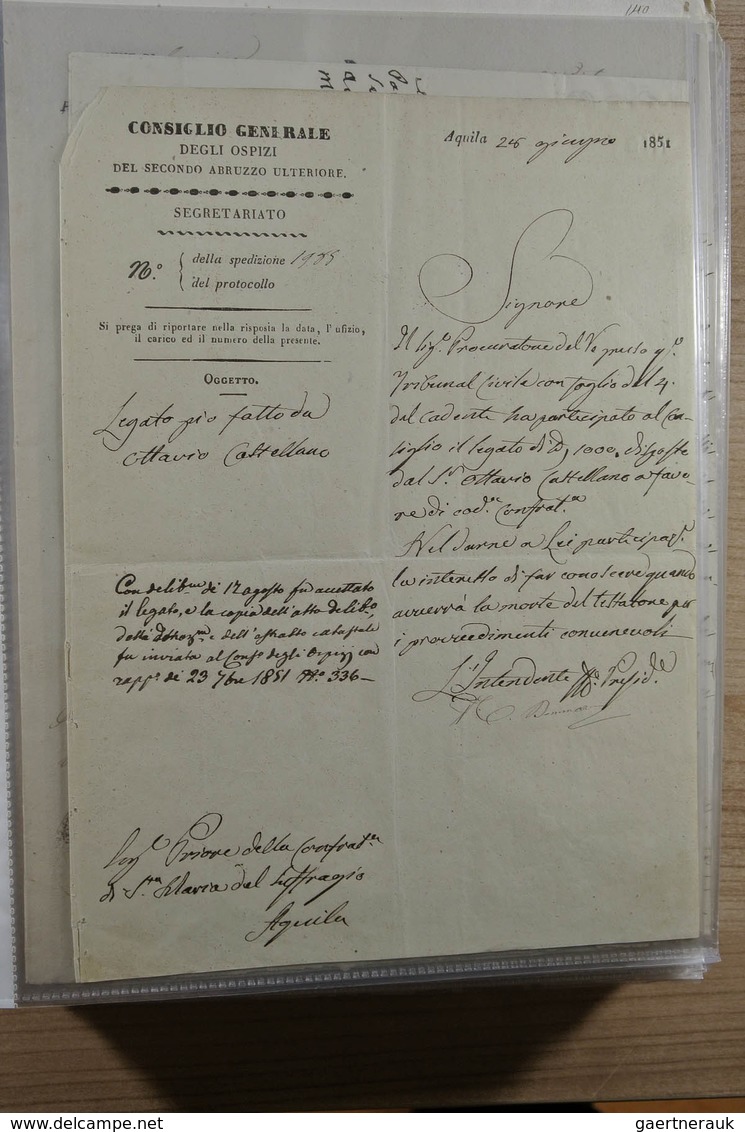 140
CONSIGLIO GENERALE
DEGLI OSPIZI
DEL SECONDO ABRUZZO ULTERIORE.
SEGRETARIATO
N.º della spedizione 1985
del protocollo
Si prega di riportare nella risposia la data, l'ufizio,
il carico ed il numero della presente.
OGGETTO.
Legato pio fatto da
Ottavio Castellano
Con delib.ne di 12 agosto fu accettato
il legato, e la copia dell'atto delib.o,
e dell'estratto catastale
fu inviata al Cons.o degli Ospizj con
rapp.o di 23 7bre 1851 N.o 336 —
Sig.e Priore della Confrat.a
di S.ta Maria del Suffragio
Aquila
Aquila 28 giugno 1851
Signore
Il Sig.e Procuratore del Re presso q.o
Tribunal Civile con foglio del 4.
del cadente ha participato al Con-
siglio il legato di D. 1000. disposto
dal S.r Ottavio Castellano a favo-
re di cod.a Confrat.a
Nel darne a Lei participaz.e
la interesso di far conoscere quando
avverrà la morte del testatore per
i provvedimenti convenevoli
L'Intendente Presid.e
gaertnerauk
© www.gaertnerauk.com